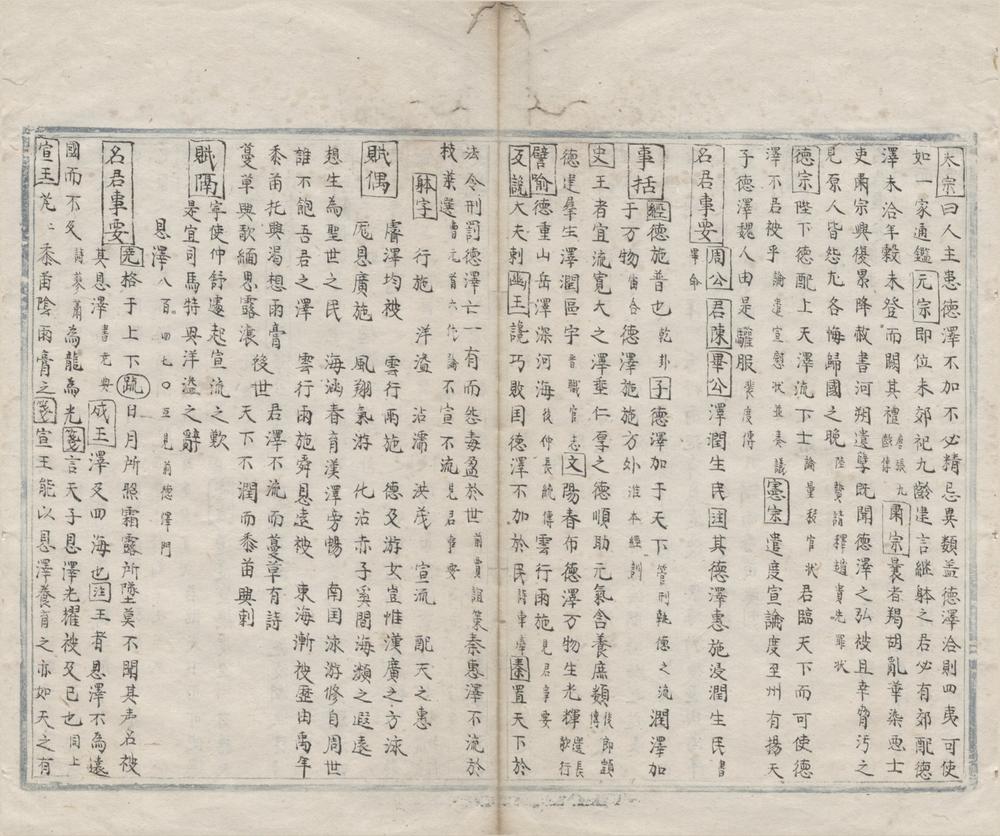 太宗曰人主患德澤不加不必精忌異類盖德澤洽則四夷可使
如一家通鑑元宗即位未郊祀九齡建言継躰之君必有郊配德
澤未洽年穀未登而闕其禮唐張九齡傳肅宗曩者羯胡亂華染惡士
吏肅宗興復累降赦書河朔遺孽既聞德澤之弘被且幸脅汚之
見原人皆怨尢各悔歸國之晚陸贄請釋趙貴先罪状
德宗陛下德配上天澤流下士論量移官状君臨天下而可使德
澤不居被乎論遣宣慰状並奏議憲宗遣度宣諭度至州有揚天
子德澤魏人由是驩服裴度傳
名君事要周公君陳畢公澤潤生民注其德澤惠施浸潤生民書畢命
事括經德施普也乾卦子德澤加于天下管刑執德之流潤澤加
于万物畜各德澤施施方外淮本經訓
史王者宜流寛大之澤垂仁厚之德順助元氣含養庶類後郎顗傳
德建羣生澤潤區字晋職官志文陽春布德澤万物生光輝選長歌行
譬喻德重山岳澤深河海後仲長統傳雲行雨施見君事要
反說大夫刺幽王䜛巧敗囯德澤不加於民詩車舝秦置天下於
法令刑罰德澤亡一有而怨毒盈於世前賈誼策秦惠澤不流於
枝葉選曹元首六代論不宣不流見君事要
躰字 行施 洋溢 沾濡 洪茂 宣流 配天之惠
賦偶 膏澤均被 雲行雨施 德及游女豈惟漢廣之方泳
厖恩廣施 風翔氣游 化沾赤子奚間海瀕之遐遠
想生為聖世之民 海涵春育漢澤旁暢 南囯泳游修自周世
誰不飽吾吾之澤 雲行雨施舜恩遠被 東海漸被歷由禹年
黍苗托興渴想雨膏 後世 君澤不流而蔓草有詩
蔓草興歌緬思露瀼 天下不潤而黍苗興刺
賦隔 寧使仲舒遽起宣流之歎
是宜司馬特興洋溢之辭
恩澤八百四七〇互見前德澤門
名君事要堯格于上下疏日月所照霜露所墜莫不聞其声名被
其恩澤書堯典成王澤及四海也注王者恩澤不為遠
國而不及詩蓼蕭為龍為光箋言天子恩澤光耀被及已也同上
宣王芃〻黍苗陰雨膏之箋宣王能以恩澤養育之亦如天之有